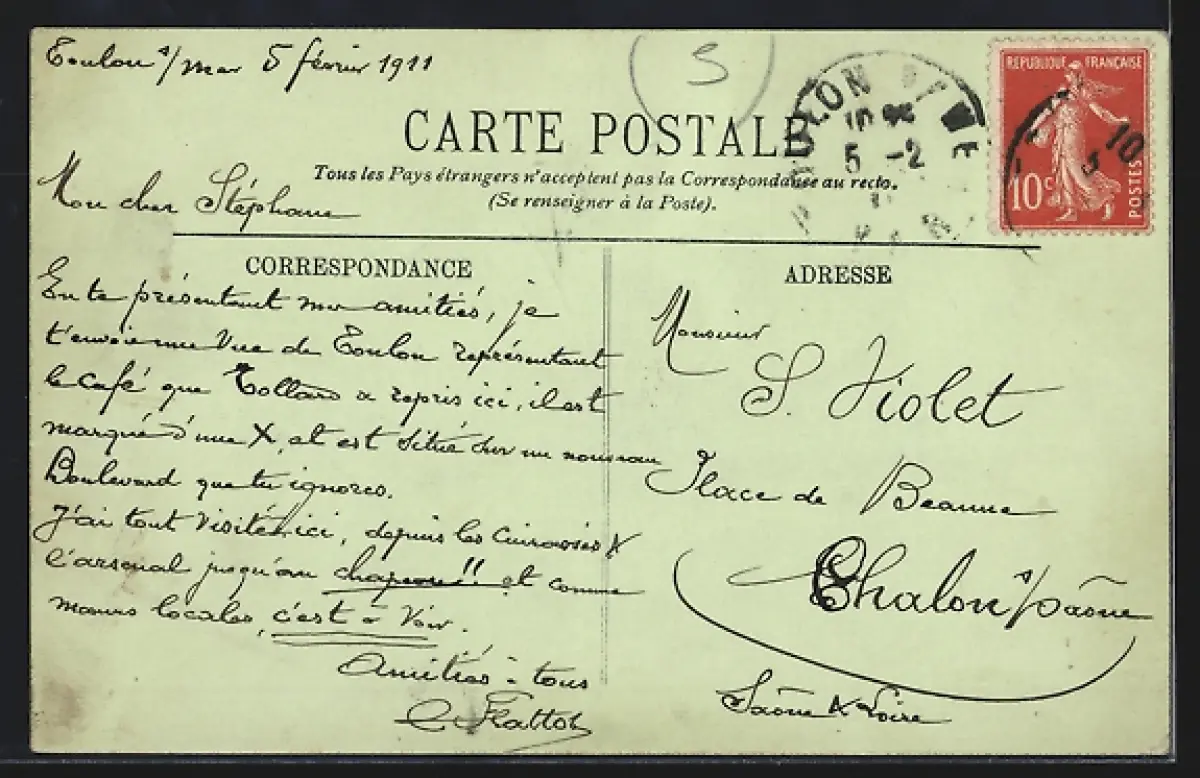 Toulon s/mer 5 février 1911
S
CARTE POSTALE
Tous les Pays étrangers n'acceptent pas la Correspondance au recto.
(Se renseigner à la Poste).
REPUBLIQUE FRANÇAISE
10c
POSTES
5 -2
10
Mon cher Stéphane
CORRESPONDANCE
En te présentant mes amitiés, je
t'envoie une Vue de Toulon représentant
le Café que a repris ici, il est
marqué d'une X, et est situé sur un nouveau
Boulevard que tu ignores.
J'ai tout visité ici, depuis les Cuirassés &
l'arsenal jusqu'au !! et comme
mœurs locales, c'est à Voir.
Amitiés à tous
ADRESSE
Monsieur
S. Violet
Place de Beaune
Chalon s/Saône
Saône & Loire